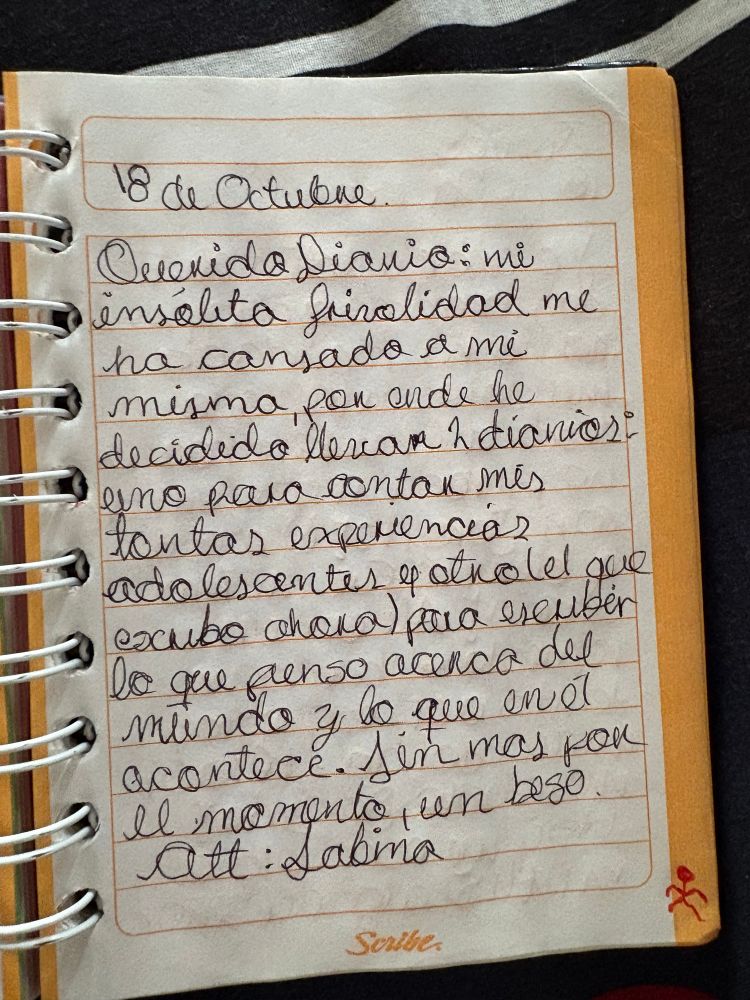 18 de Octubre.
Querido Diario: mi
insólita frivolidad me
ha cansado a mi
misma, por ende he
decidido llevar 2 diarios:
uno para contar mis
tontas experiencias
adolescentes y otro (el que
escribo ahora) para escribir
lo que pienso acerca del
mundo y lo que en él
acontece. Sin mas por
el momento, un beso.
Att: Sabina
Scribe.